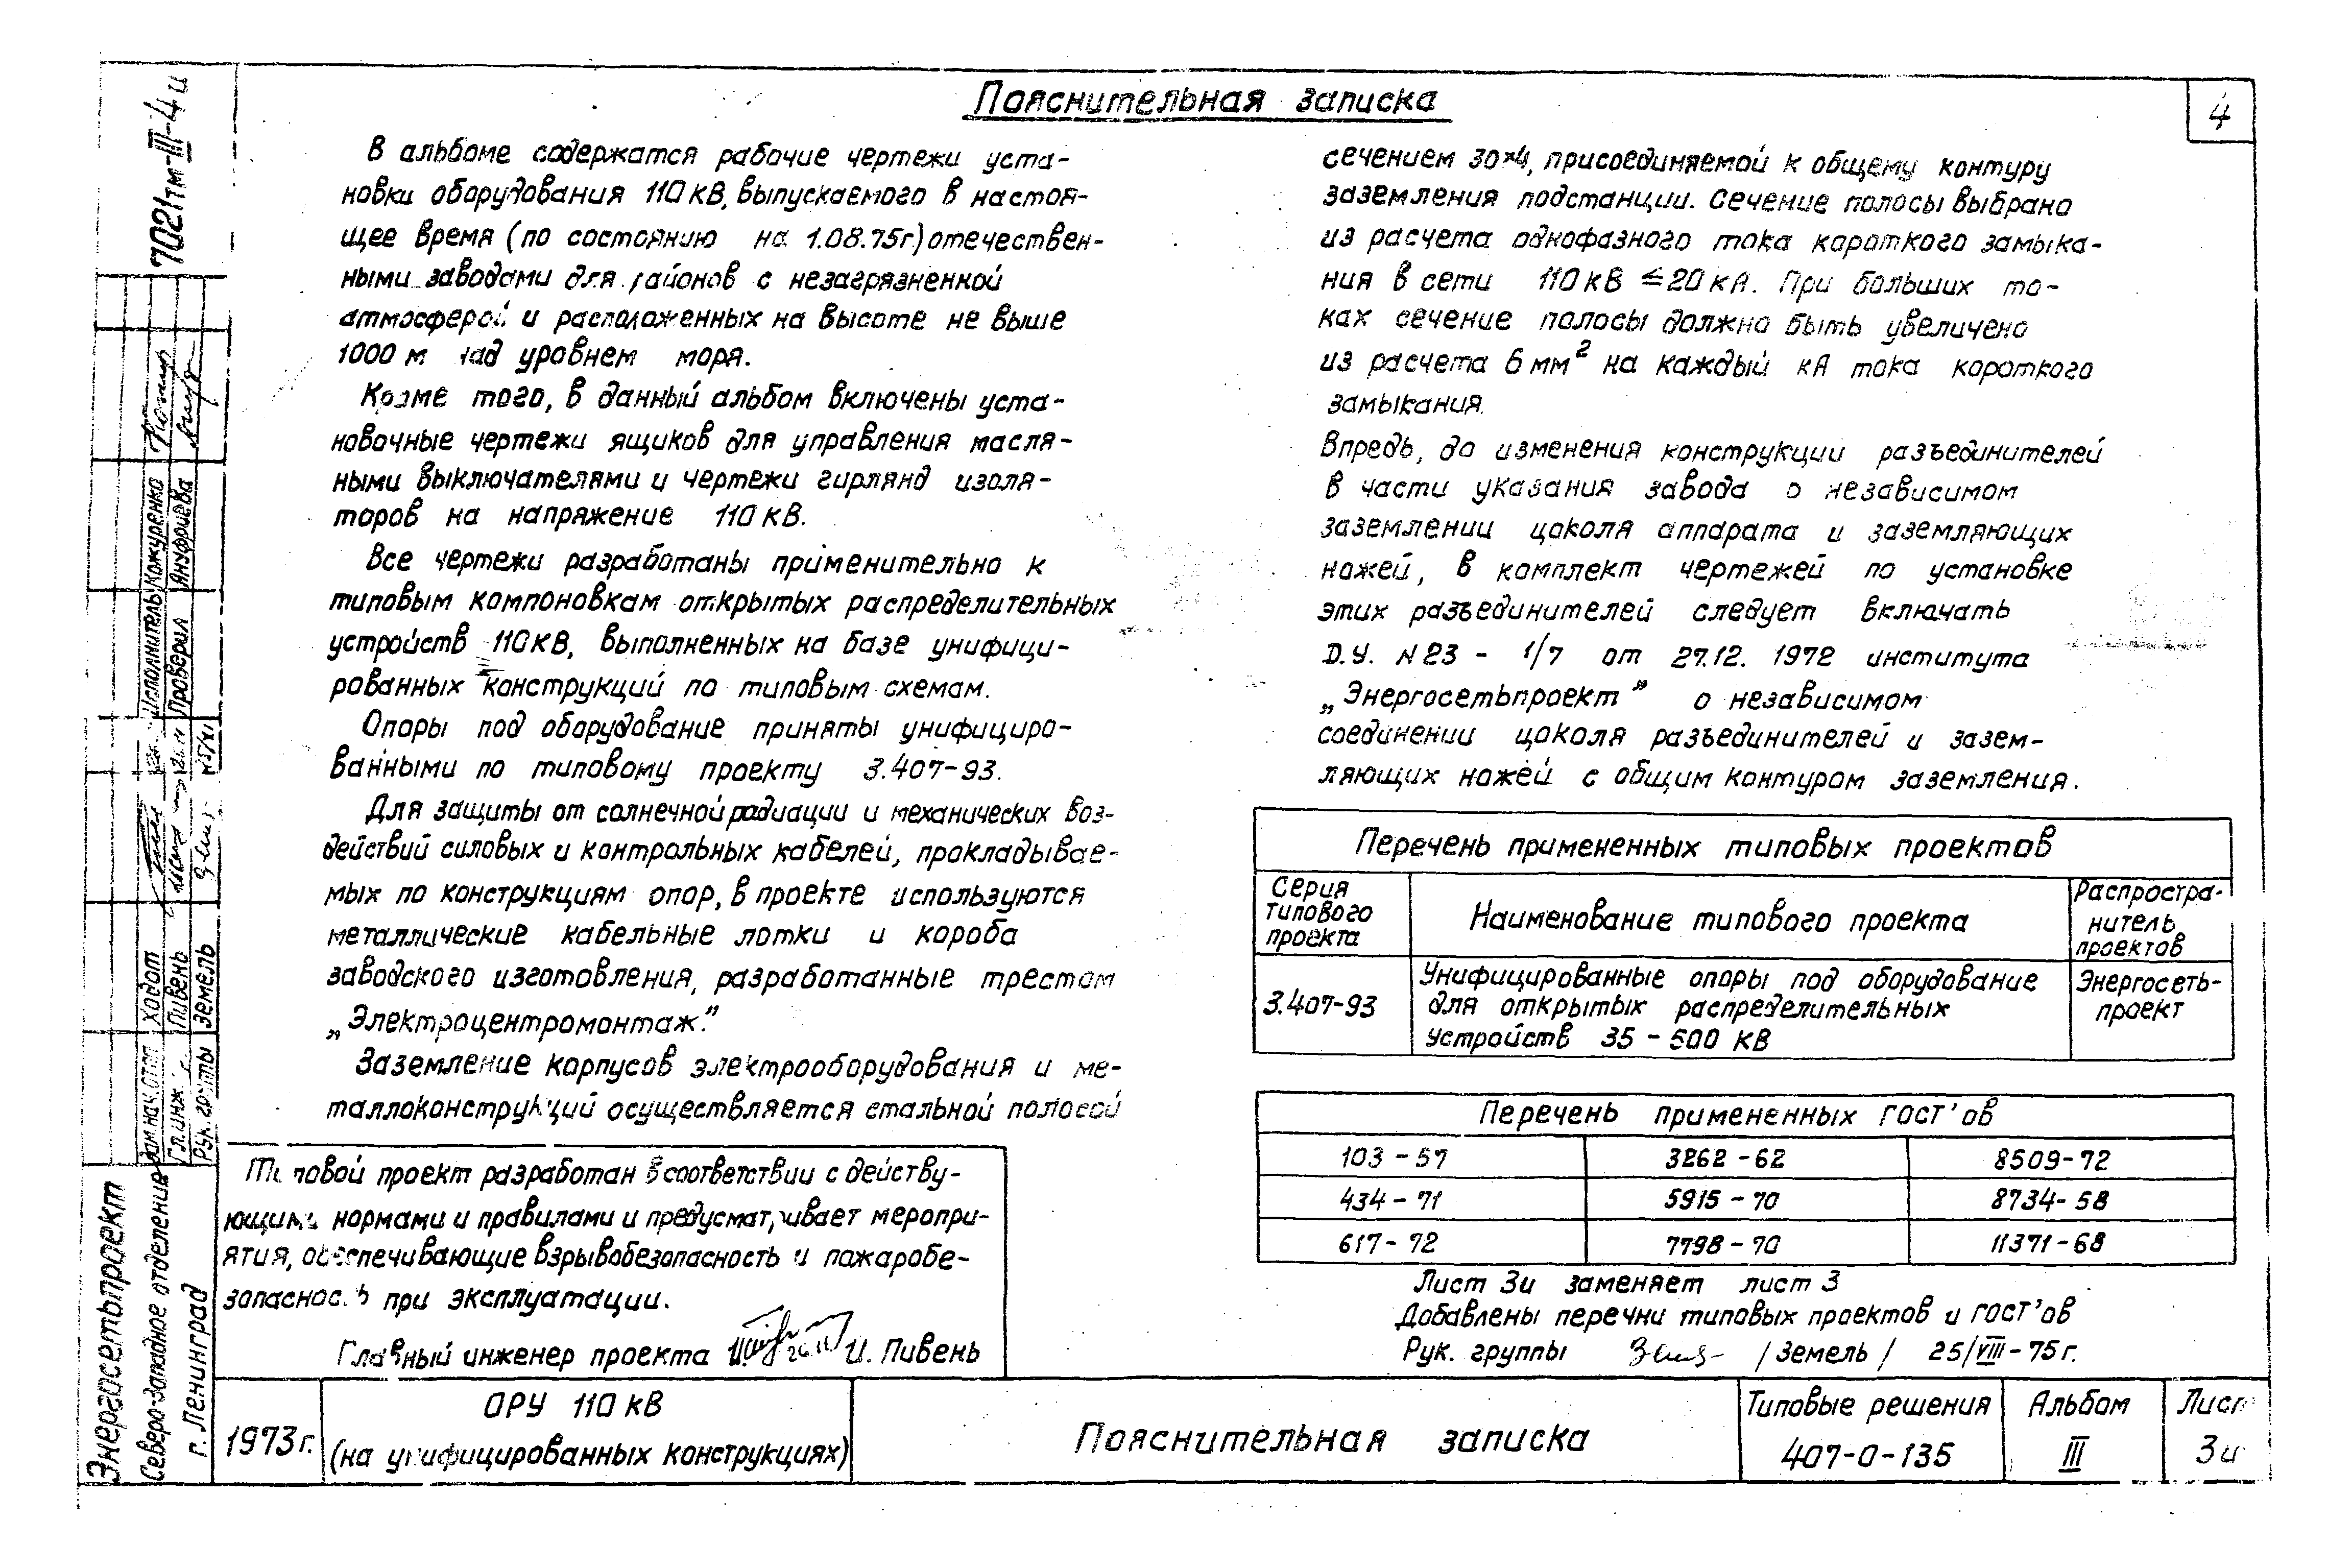 Пояснительная записка
4
В альбоме содержатся рабочие чертежи уста-
новки оборудования 110 кВ, выпускаемого в настоя-
щее время (по состоянию на 1.08.75г.) отечествен-
ными заводами для районов с незагрязненной
атмосферой и расположенных на высоте не выше
1000 м над уровнем моря.
Кроме того, в данный альбом включены уста-
новочные чертежи ящиков для управления масля-
ными выключателями и чертежи гирлянд изоля-
торов на напряжение 110 кВ.
Все чертежи разработаны применительно к
типовым компоновкам открытых распределительных
устройств 110 кВ, выполненных на базе унифици-
рованных конструкций по типовым схемам.
Опоры под оборудование приняты унифициро-
ванными по типовому проекту 3.407-93.
Для защиты от солнечной радиации и механических воз-
действий силовых и контрольных кабелей, прокладывае-
мых по конструкциям опор, в проекте используются
металлические кабельные лотки и короба
заводского изготовления, разработанные трестом
„Электроцентромонтаж."
Заземление корпусов электрооборудования и ме-
таллоконструкций осуществляется стальной полосой
сечением 30×4, присоединяемой к общему контуру
заземления подстанции. Сечение полосы выбрано
из расчета однофазного тока короткого замыка-
ния в сети 110 кВ ≤ 20 кА. При больших то-
ках сечение полосы должно быть увеличено
из расчета 6 мм² на каждый кА тока короткого
замыкания.
Впредь, до изменения конструкции разъединителей
в части указания завода о независимом
заземлении цоколя аппарата и заземляющих
ножей, в комплект чертежей по установке
этих разъединителей следует включать
Д.У. N 23 - 1/7 от 27.12. 1972 института
„Энергосетьпроект" о независимом
соединении цоколя разъединителей и зазем-
ляющих ножей с общим контуром заземления.
Перечень примененных типовых проектов
Серия типового проекта
Наименование типового проекта
Распростра-нитель проектов
3.407-93
Унифицированные опоры под оборудование
для открытых распределительных
устройств 35 - 500 кВ
Энергосеть-
проект
Перечень примененных ГОСТ'ов
103 - 57 3262 - 62 8509 - 72
434 - 71 5915 - 70 8734 - 58
617 - 72 7798 - 70 11371 - 68
Лист 3и заменяет лист 3
Добавлены перечни типовых проектов и ГОСТ'ов
Рук. группы /Земель/ 25/VIII - 75 г.
Типовой проект разработан в соответствии с действу-
ющими нормами и правилами и предусматривает меропри-
ятия, обеспечивающие взрывобезопасность и пожаробе-
зопасность при эксплуатации.
Главный инженер проекта И. Пивень
1973 г.
ОРУ 110 кВ
(на унифицированных конструкциях)
Пояснительная записка
Типовые решения
407-0-135
Альбом
III
Лист
3и
7021тм-III-4и
Исполнитель Кожуренко
Проверил Ануфриева
Зам.нач.отд. Ходот
Гл.инж. Пивень
Рук. группы Земель
Энергосетьпроект
Северо-западное отделение
г. Ленинград